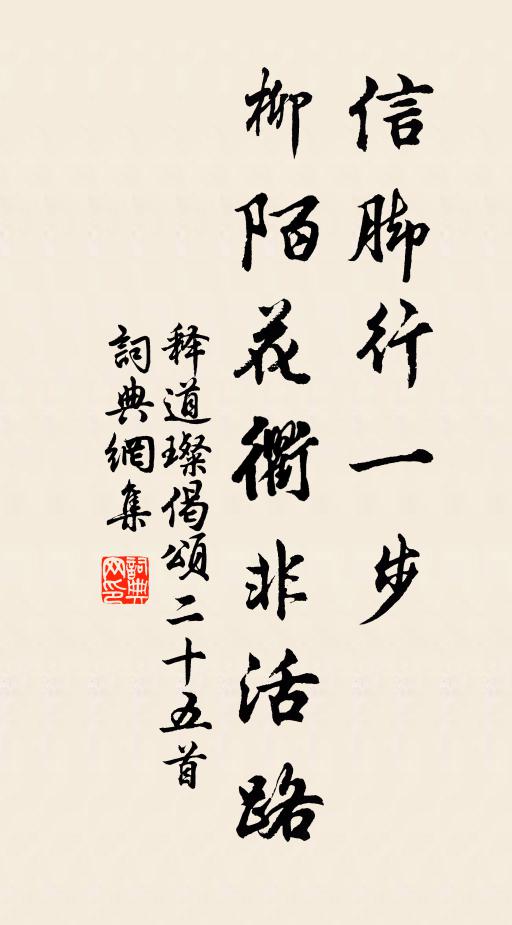 信脚行一步
柳陌花衢非活路
释道璨偈颂二十五首
詞典網集
詞典网印